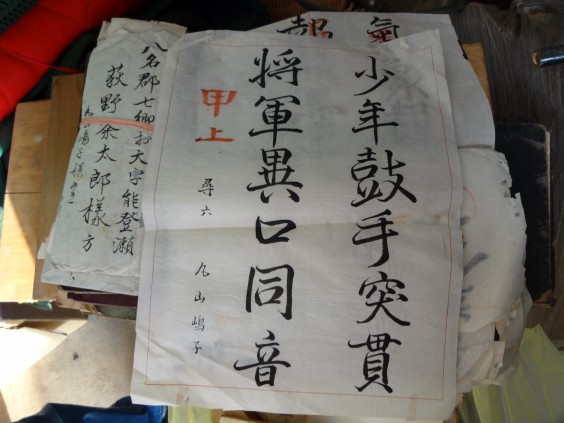 少年鼓手突貫
將軍異口同音
甲上
尋六 丸山嶋子
氣
八名郡七郷村大字能登瀬
荻野 太郎様方
丸山嶋子様